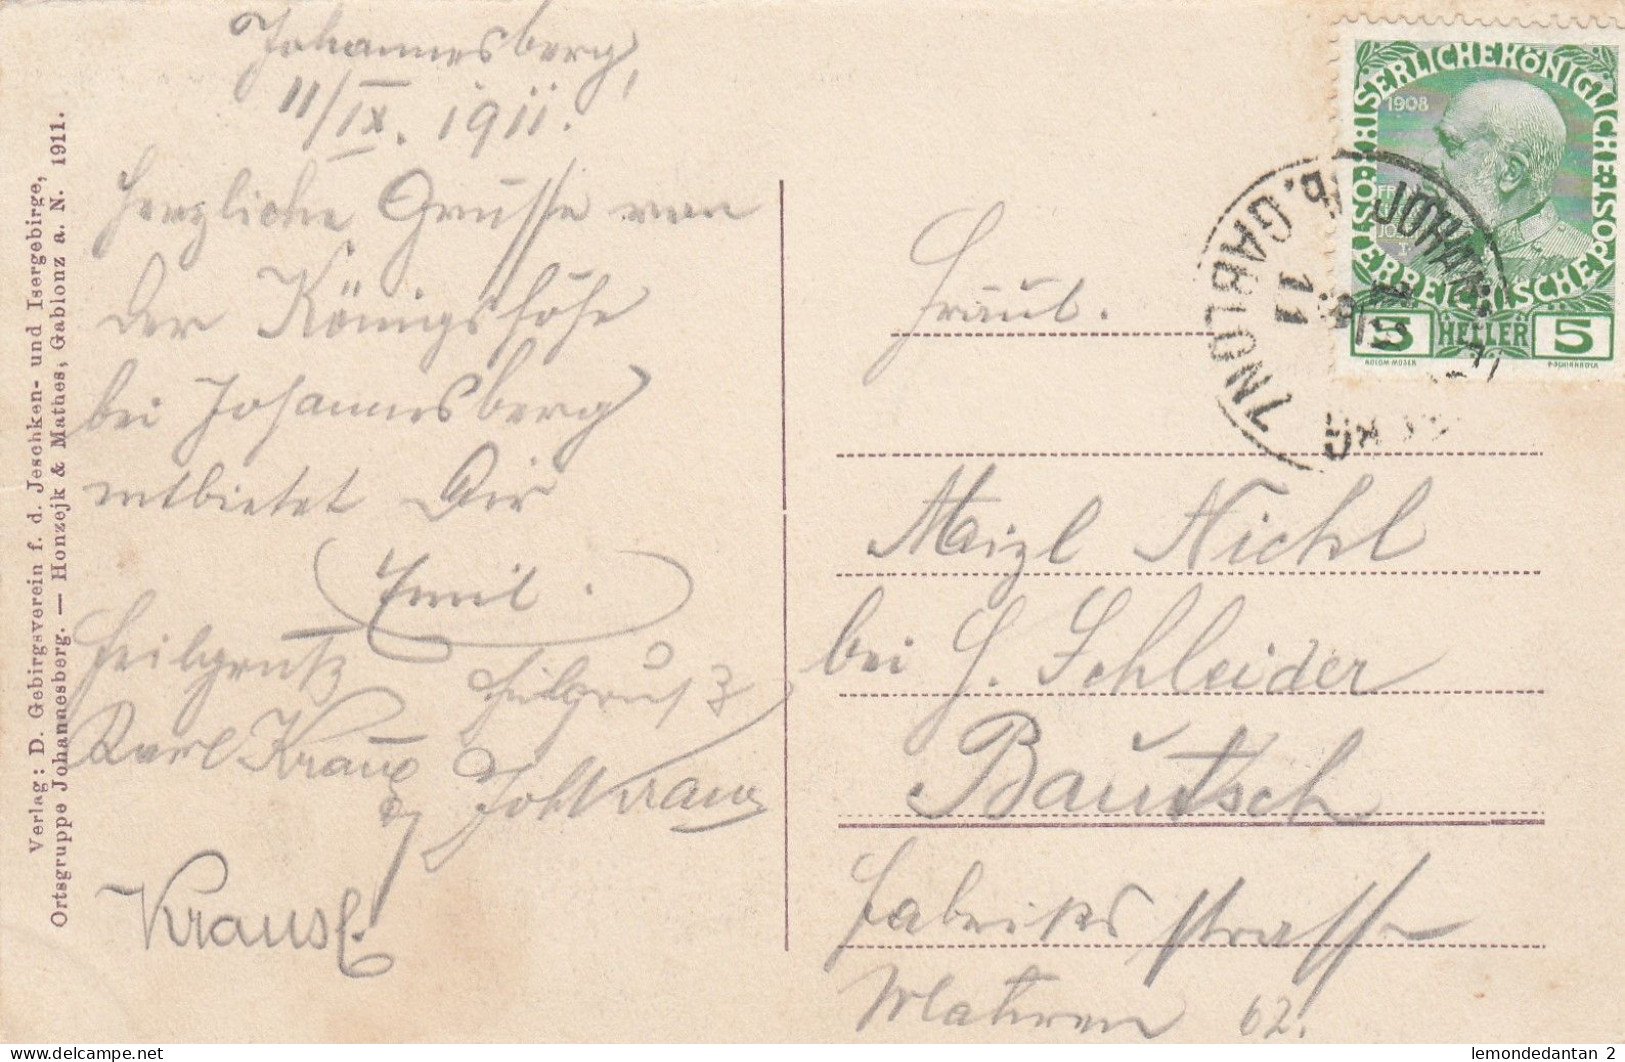 Johannesberg,
11/IX. 1911.
Herzliche Grüsse von
der Königshöhe
bei Johannesberg
entbietet Dir
Emil.
Heilgrutz
Karl Kraus
Heilgruß
Kraus
Verlag: D. Gebirgsverein f. d. Jeschken- und Isergebirge,
Ortsgruppe Johannesberg. — Honzejk & Mathes, Gablonz a. N. 1911.
KAISERLICHE KÖNIGLICHE ÖSTERREICHISCHE POST
1908
5 HELLER 5
JOHANNESBERG B. GABLONZ
11
Fräul.
Maizl Nickl
bei G. Schleider
Bautsch
Fabriksstrasse
Mahren 62.
www.delcampe.net
lemondedantan_2